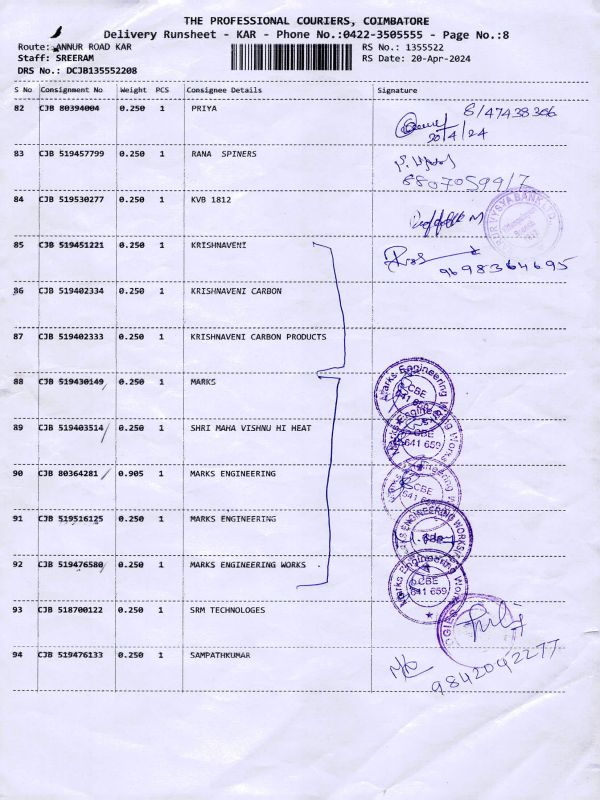 THE PROFESSIONAL COURIERS, COIMBATORE
Delivery Runsheet - KAR - Phone No.:0422-3505555 - Page No.:8
Route: ANNUR ROAD KAR
RS No.: 1355522
Staff: SREERAM
RS Date: 20-Apr-2024
DRS No.: DCJB135552208
S No Consignment No Weight PCS Consignee Details Signature
82 CJB 80394004 0.250 1 PRIYA
20/4/24
83 CJB 519457799 0.250 1 RANA SPINERS
84 CJB 519530277 0.250 1 KVB 1812
85 CJB 519451221 0.250 1 KRISHNAVENI
9698364695
86 CJB 519402334 0.250 1 KRISHNAVENI CARBON
87 CJB 519402333 0.250 1 KRISHNAVENI CARBON PRODUCTS
88 CJB 519430149 0.250 1 MARKS
Marks Engineering Works
CBE
641 659
89 CJB 519403514 0.250 1 SHRI MAHA VISHNU HI HEAT
Marks Engineering Works
CBE
641 659
90 CJB 80364281 0.905 1 MARKS ENGINEERING
Marks Engineering Works
CBE
641 659
91 CJB 519516125 0.250 1 MARKS ENGINEERING
MARKS ENGINEERING WORKS
92 CJB 519476580 0.250 1 MARKS ENGINEERING WORKS
Marks Engineering Works
CBE
641 659
93 CJB 518700122 0.250 1 SRM TECHNOLOGES
94 CJB 519476133 0.250 1 SAMPATHKUMAR
9842092277